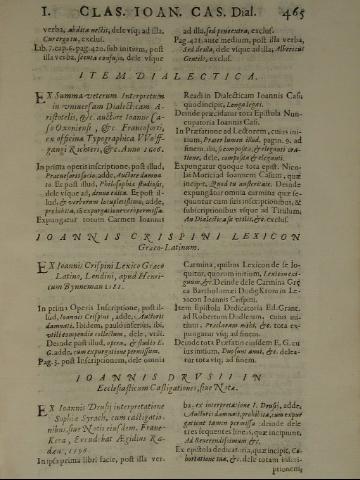 I. CLAS. IOAN. CAS. Dial. 465
verba, abdita nectis, dele vsq; ad illa,
Curergotu, exclus.
Lib. 7. cap. 6. pag. 420. sub initum, post
illa verba, dele vsque
ad illa, exclus.
Pag. 421. ante medium, post illa verba,
Sed dvalla, dele vsque ad illa, Albericus
Gentilis, exclus.
ITEM DIALECTICA.
EX Summa veterum Interpretum
in vniuersam Dialecticam A-
ristotelis, &c. auctore Ioanne Ca-
so Oxoniensi, &c. Francoforti,
ex officina Typographica Wolff-
gangi Richteri, &c. Anno 1606.
In prima operis inscriptione, post illud,
adde, Auctore damna-
to. Et post illud, Philosophiæ studiosis,
dele vsque ad, Et post il-
lud, & verborum locupletissimo, adde,
prohibita, cum expurgatione permissa.
Expungatur totum Carmen Ioannis
Reusch in Dialecticam Ioannis Casi,
quod incipit, Longa legas.
Deinde præcidatur tota Epistola Nun-
cupatoria Ioannis Casi.
In Præfatione ad Lectorem, cuius ini-
tium, Præter lumen illud. pagin. 9. ad
finem. ibi, (composita, & eleganti ora-
tione, dele, composita & eleganti.
Expungatur quoque tota epist. Nico-
lai Moricii ad Ioannem Casum, quæ
incipit, Quod tu austeritate. Deinde
expungatur omnia carmina quæ se-
quuntur cum suis inscriptionibus, &
subscriptionibus vsque ad Titulum,
An Dialectica sit vtilis, &c. exclus.
IOANNIS CRISPINI LEXICON
Græco-Latinum.
EX Ioannis Crispini Lexico Græco
Latino, Londini, apud Henri-
cum Bynneman. 1581.
In prima Operis Inscriptione, post il-
lud, Ioannis Crispini, adde, Auctoris
damnati. Ibidem, paulò inferiùs, ibi,
vtili compendio collectum, dele, vtili.
Deinde post illud, opera, & studio E.
G. addo, cum expurgatione permissum.
Pag. 3. post Inscriptionem, dele omnia
Carmina, quibus Lexicon de se lo-
quitur, quorum initium, Lexicon exi-
guum, &c. Deinde dele Carmina Græ-
ca Bartholomæi Dodigktom in Le-
xicon Ioannis Crispini.
Item Epistola Dedicatoria Ed. Grant,
ad Robertum Dudleum, cuius ini-
tium, Præclarum mihi, &c. tota ex-
pungatur vsq; ad finem.
Deinde tota Præfatio eiusdem E. G. cu-
ius initium, Duo sunt anni, &c. delea-
tur tota vsq; ad finem.
IOANNIS DRVSII IN
Ecclesiasticum Castigationes, siue Notæ.
EX Ioannis Drusij interpretatione
Sophiæ Syrach, cum castigatio-
nibus, siue Notis eiusdem. Frane-
Kera, Excudebat Ægidius Ra-
dæus, 1596.
In ipsa prima libri facie, post illa ver-
ba, ex interpretatione I. Drusij, adde,
Auctoris damnati, prohibita, cum expur-
gatione tamen permissa: deinde dele
tres sequentes lineas, quæ incipiunt,
Ad Reuerendissimum &c.
Ex epistola dedicatoria, quæ incipit,
&c. dele totam inscri-
ptionem,